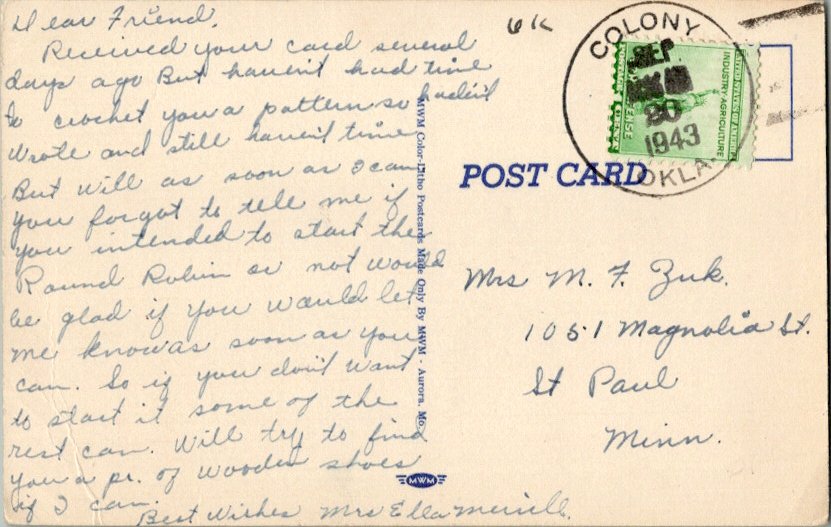 Dear Friend.
Received your card several
days ago But haven't had time
to crochet you a pattern so hadn't
wrote and still haven't time
But will as soon as I can
you forgot to tell me if
you intended to start the
Round Robin or not would
be glad if you would let
me know as soon as you
can. So if you don't want
to start it some of the
rest can. Will try to find
you a pr. of wooden shoes
if I can.
Best Wishes Mrs Ella Merrill.
MWM Color-Litho Postcards Made Only By MWM - Aurora, Mo.
MWM
6K
COLONY
SEP
20
1943
OKLA.
UNITED STATES OF AMERICA
INDUSTRY AGRICULTURE
POST CARD
Mrs M. F. Zuk.
1051 Magnolia St.
St Paul
Minn.